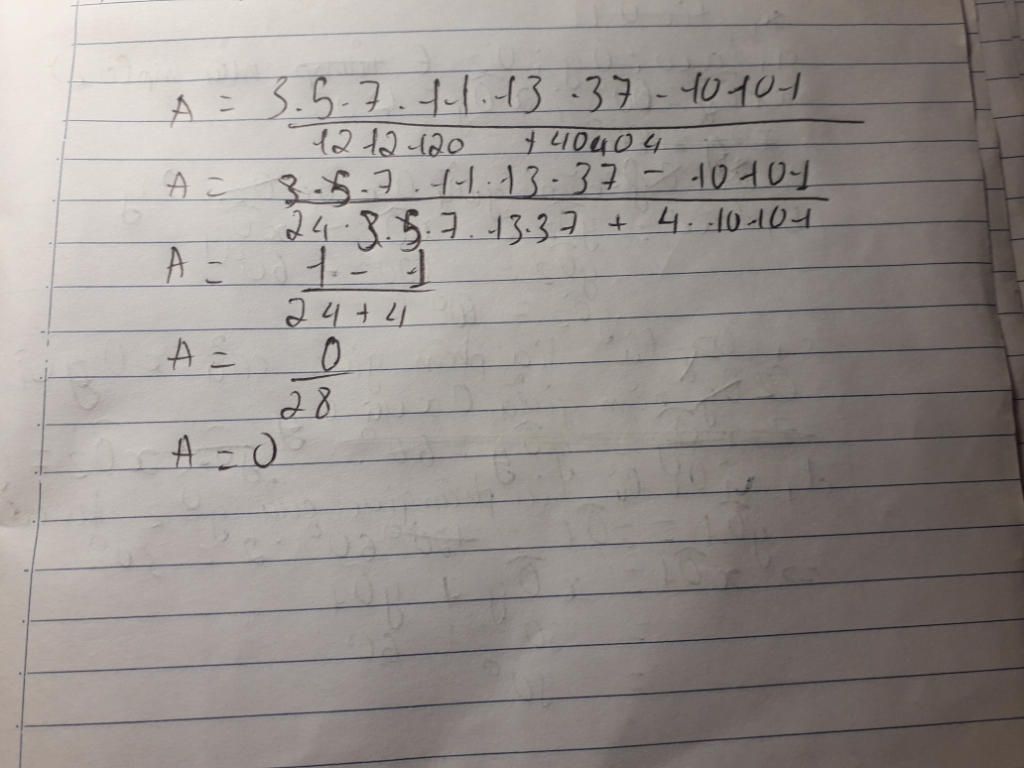 A = 3.5.7.11.13.37 - 10101
1212120 + 40404
A = 3.5.7.11.13.37 - 10101
24.3.5.7.13.37 + 4.10101
A = 1 - 1
24 + 4
A = 0
28
A = 0